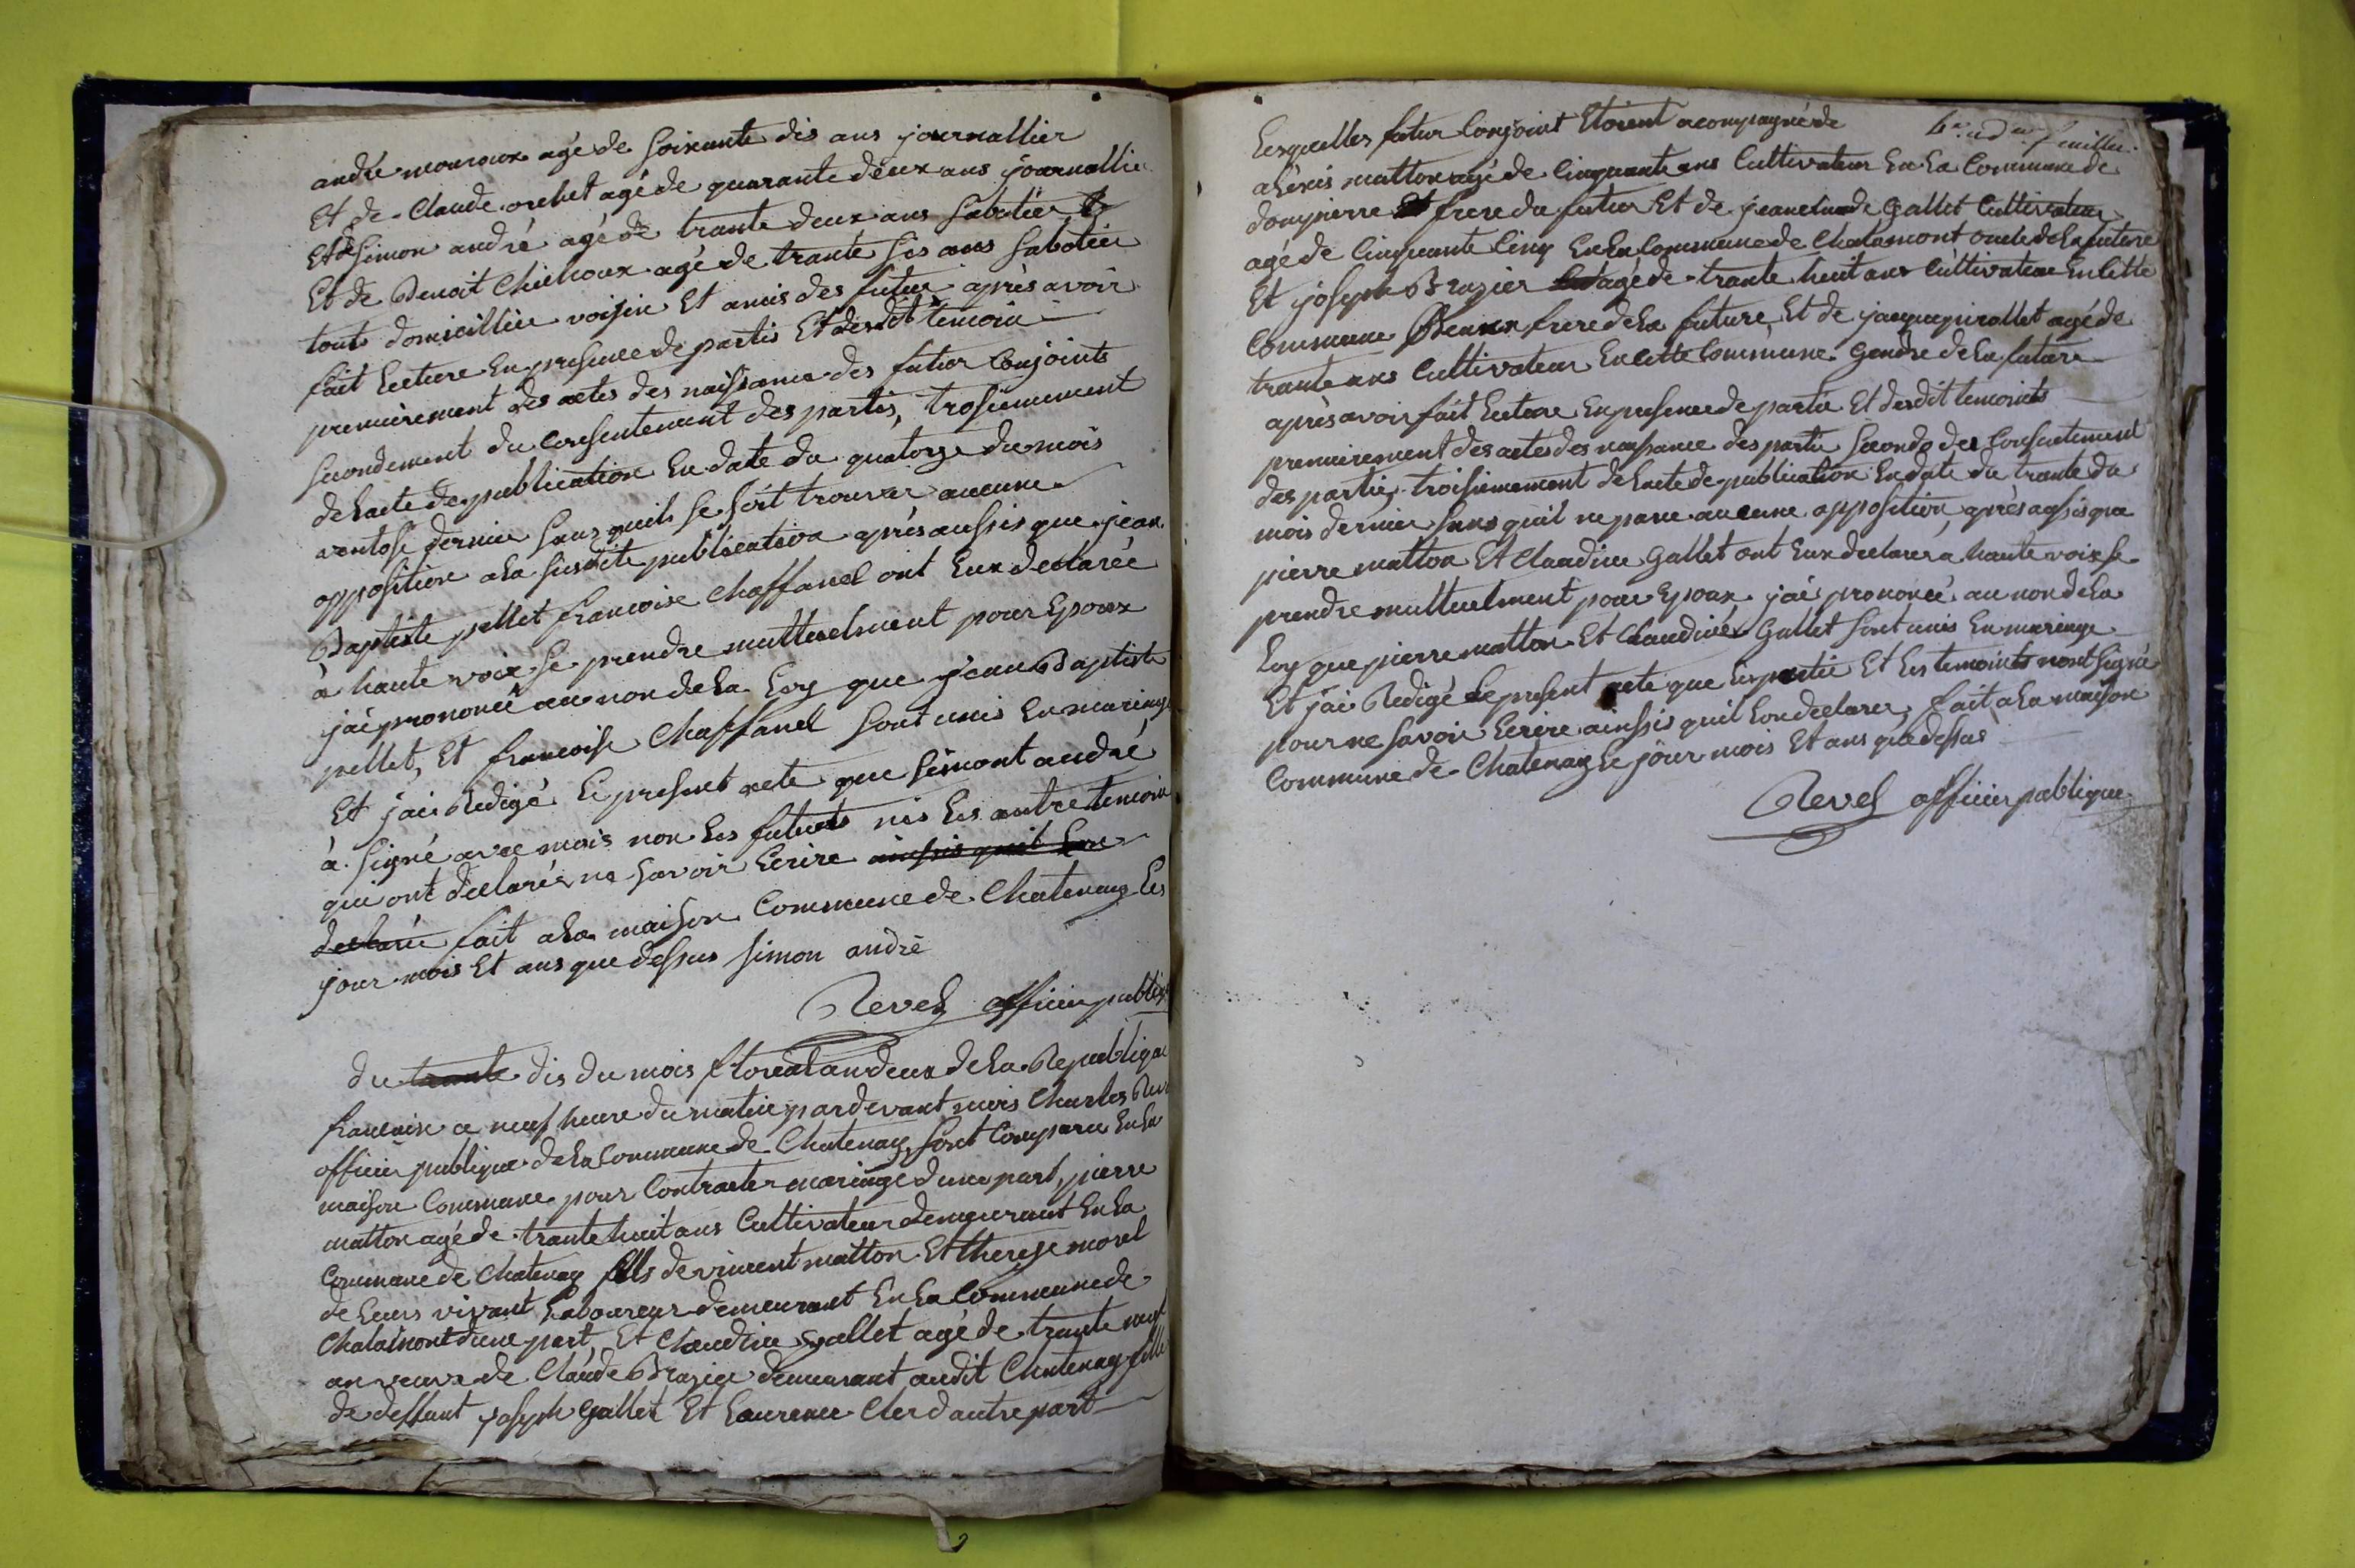 andré mouroux agé de soixante dis ans journallier
Et de Claude orchet agé de quarante deux ans journallie
Et de Simon andré agé de trante deux ans sabotier
Et de Benoit Chichoux agé de trante sis ans sabotier
touts domicillier voisin Et amis des futur après avoir
fait lecture En presence de partis Et desdit temoin
premierement des actes des naissance des futur Conjoints
secondement du Consentement des partis, trosiemement
de lacte de publication En date du quatorze du mois
ventose dernier sans quils se soit trouver aucune
opposition ala susdite publication après aussis que jean
Baptiste pellet francoise Chaffanel ont Eux declarée
à haute voix se prendre muttuelment pour Epoux
jai prononcé au non de la Loy que jean Baptiste
pellet, Et francoise Chaffanel sont unis En mariage
Et jai Redigé Le present acte que simont andré
à signé avec mois non Les futurts nis Les autre temoin
qui ont declarée ne savoir Ecrire ainssis quil Lon
declarée fait ala maison Commune de Chatenay Les
jour mois Et ans que dessus simon andré
Revel officier publi
du trante dis du mois floreal an deux de la Republique
francaise a neuf heure du matin pardevant mois Charles Rev
officier publique de la Commune de Chatenay sont Comparu En la
maison Commune pour Contracter mariage dune part, pierre
matton agé de trante huit ans Cultivateur demeurant En la
Commune de Chatenay fils de vincent matton Et therese morel
de Leurs vivant Laboureur demeurant En la Commune de
Chalamont dune part, Et Claudine Gallet agé de trante neuf
an veuve de Claude Brazier demeurant audit Chatenay fille
de deffunt joseph Gallet Et Laurence Clerd autre part
Lesquelles futur Conjoint Etoient acompagné de
alexis matton agé de Cinquante ans Cultivateur En la Commune de
dompierre Et frere du futur Et de jean claude Gallet Cultivateur
agé de Cinquante Cinq En la Commune de Chalamont oncle de la future
Et joseph Brazier agé de trante huit ans Cultivateur En Cette
Commune Beaux frere de la future, Et de jacque pirollet agé de
trante ans Cultivateur En Cette Commune Gendre de la future
après avoir fait Lecture En presence de partie Et desdit temoints
premierement des actes des naissance des partie secondo de Consentement
des partie, troisiemement de Lacte de publication En date du trante du
mois dernier sans quil ne parue aucune opposition, après ausis que
pierre matton Et Claudine Gallet ont Eux declarer a haute voix se
prendre muttuelment pour Epoux jai prononcé au non de la
Loy que pierre matton Et Claudine Gallet sont unis En mariage
Et jai Redigé Le present acte que Les partie Et Les temoints nont signé
pour ne savoir Ecrire ainssis quil Lon declarer, fait ala maison
Commune de Chatenay Le jour mois Et ans que dessus
Revel officier publique